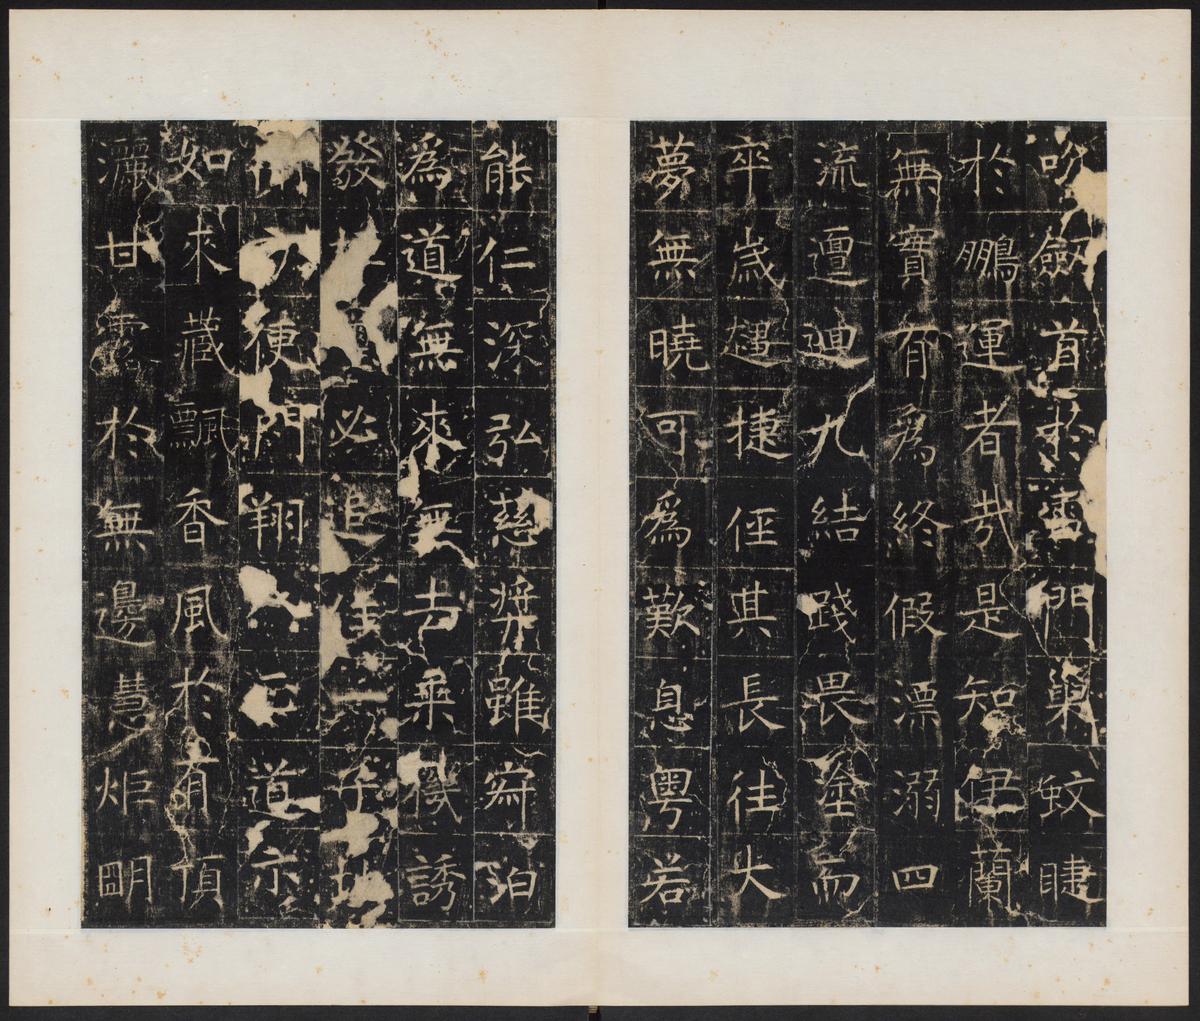 吹劒首於雷門巢蚊睫
於鵬運者㢤是知伊蘭
無實有爲終假漂溺四
流邅迴九結踐畏塗而
卒歳趨捷侄其長往大
夢無曉可爲歎息粤若
能仁深弘慈奨雖寂泊
爲道無來無去乗機誘
發 必追
方便門翔 云道示
如來藏飄香風於有頂
灑甘露於無邊慧炬明